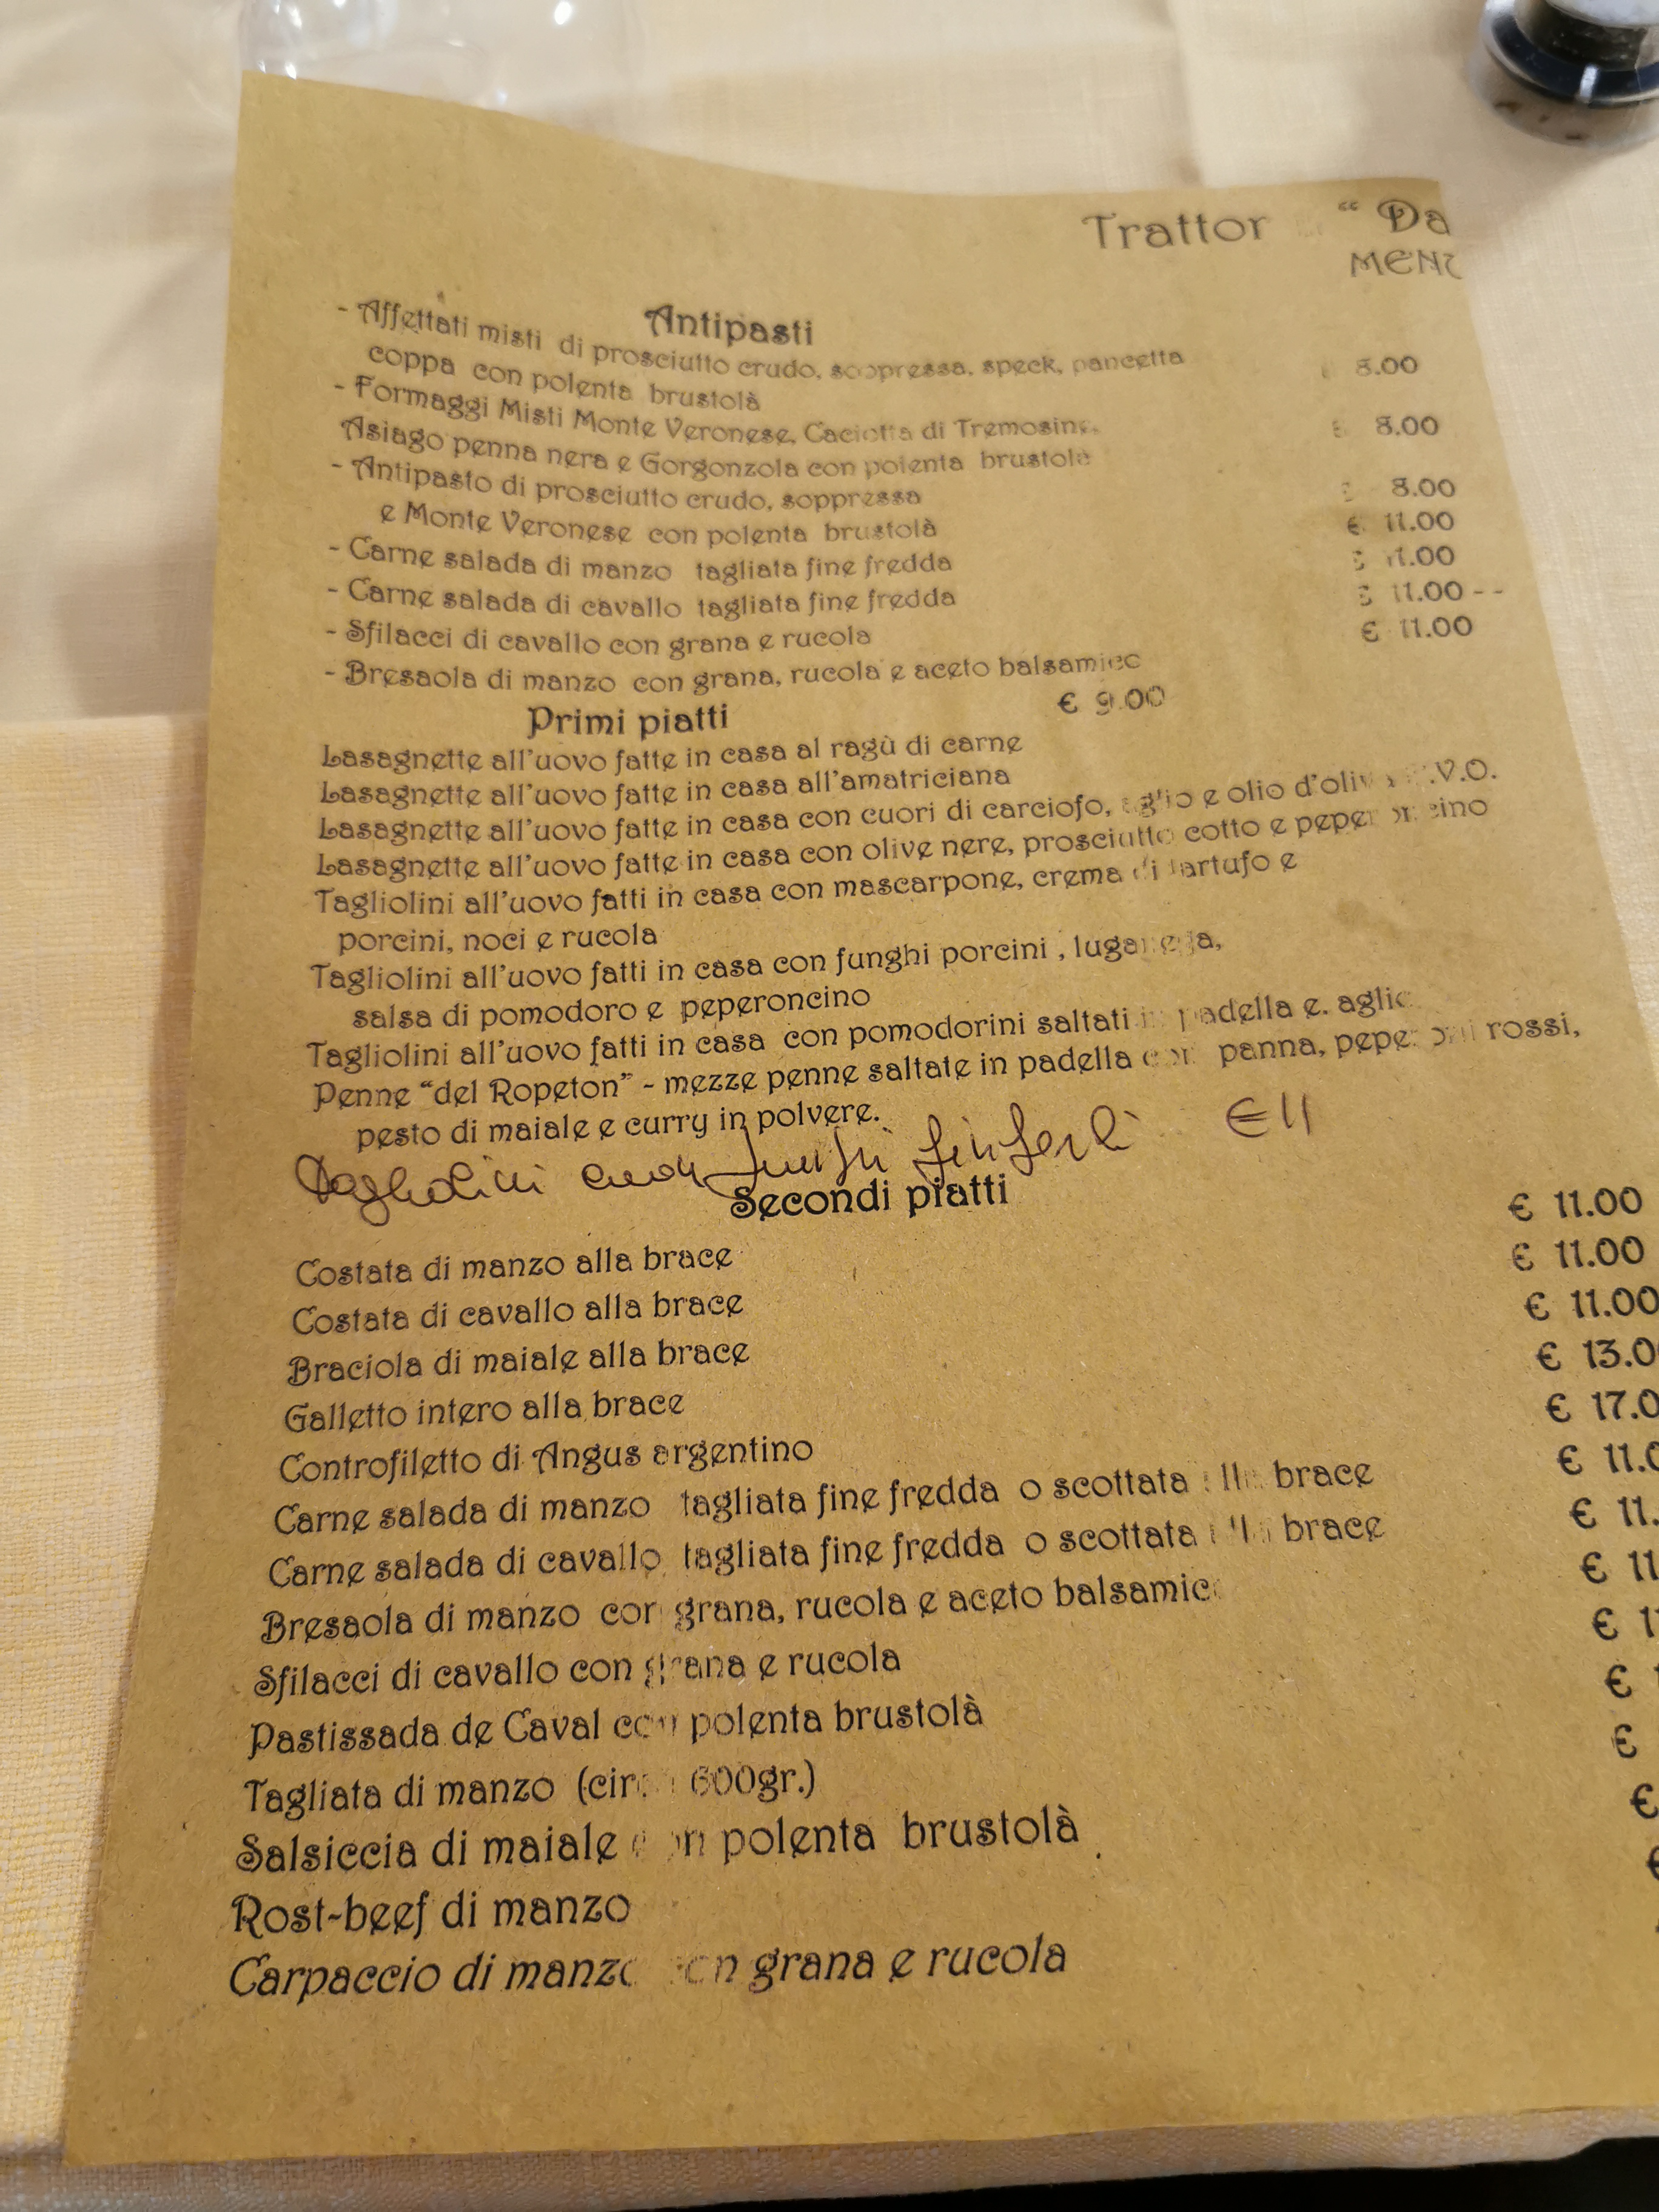 Trattor “ Da
MENU
Antipasti
- Affettati misti di prosciutto crudo, soppressa, speck, pancetta € 8.00
coppa con polenta brustolà
- Formaggi Misti Monte Veronese, Caciotta di Tremosine, € 8.00
Asiago penna nera e Gorgonzola con polenta brustolà
- Antipasto di prosciutto crudo, soppressa € 8.00
e Monte Veronese con polenta brustolà
- Carne salada di manzo tagliata fine fredda € 11.00
- Carne salada di cavallo tagliata fine fredda € 11.00
- Sfilacci di cavallo con grana e rucola € 11.00 --
- Bresaola di manzo con grana, rucola e aceto balsamico € 11.00
Primi piatti € 9.00
Lasagnette all’uovo fatte in casa al ragù di carne
Lasagnette all’uovo fatte in casa all’amatriciana
Lasagnette all’uovo fatte in casa con cuori di carciofo, aglio e olio d’oliva E.V.O.
Lasagnette all’uovo fatte in casa con olive nere, prosciutto cotto e peperoncino
Tagliolini all’uovo fatti in casa con mascarpone, crema di tartufo e
porcini, noci e rucola
Tagliolini all’uovo fatti in casa con funghi porcini , luganega,
salsa di pomodoro e peperoncino
Tagliolini all’uovo fatti in casa con pomodorini saltati in padella e. aglio
Penne “del Ropeton” - mezze penne saltate in padella con panna, peperoni rossi,
pesto di maiale e curry in polvere.
Tagliolini con funghi finferli €11
Secondi piatti
Costata di manzo alla brace € 11.00
Costata di cavallo alla brace € 11.00
Braciola di maiale alla brace € 11.00
Galletto intero alla brace € 13.0
Controfiletto di Angus argentino € 17.0
Carne salada di manzo tagliata fine fredda o scottata alla brace € 11.0
Carne salada di cavallo tagliata fine fredda o scottata alla brace € 11.
Bresaola di manzo con grana, rucola e aceto balsamico € 11
Sfilacci di cavallo con grana e rucola € 1
Pastissada de Caval con polenta brustolà €
Tagliata di manzo (circa 600gr.) €
Salsiccia di maiale con polenta brustolà €
Rost-beef di manzo €
Carpaccio di manzo con grana e rucola